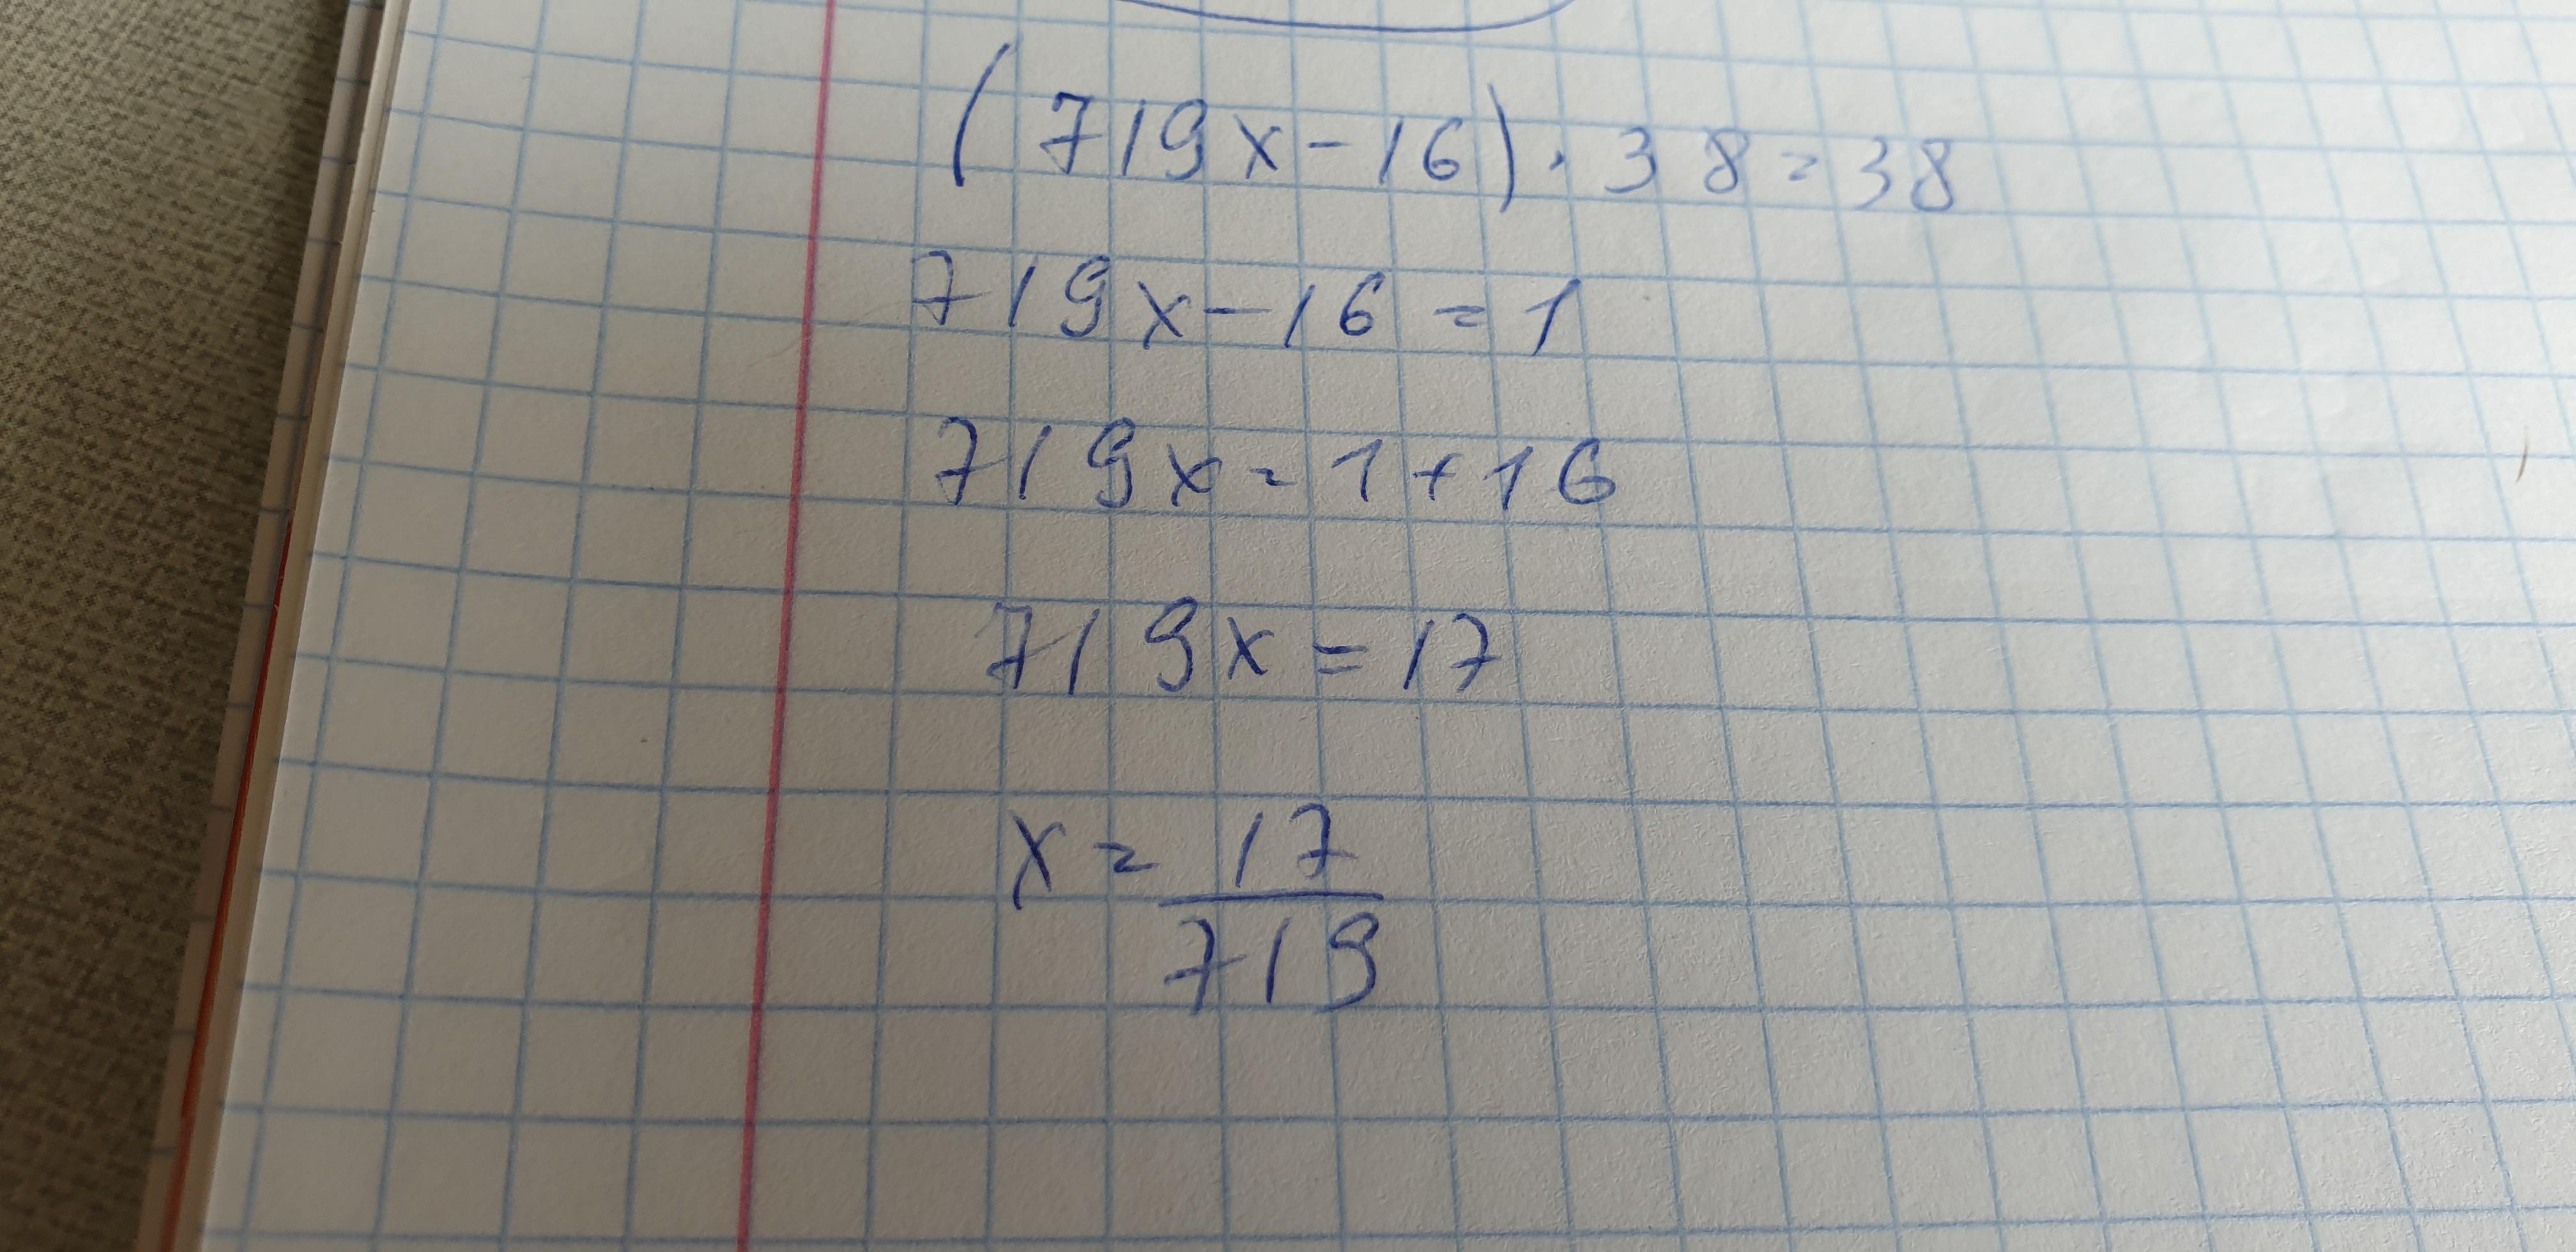 (719x-16)·38=38
719x-16=1
719x=1+16
719x=17
x=17/719